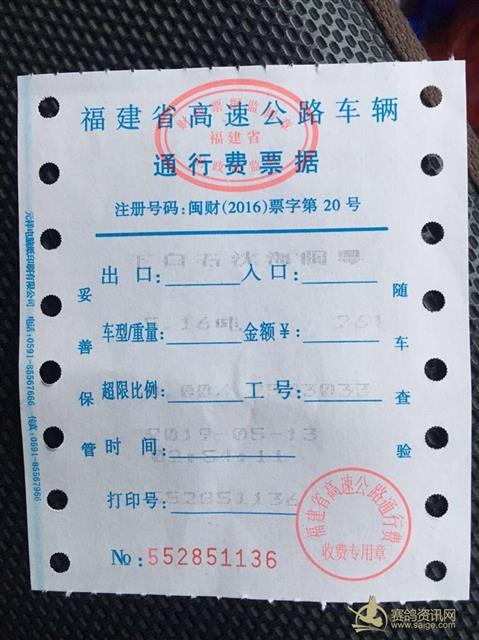 福建省高速公路车辆
通行费票据
福建省
注册号码:闽财(2016)票字第 20 号
下白石
出口: 入口:
5.16 261
车型/重量: 金额¥:
超限比例: 工号:
2019-05-13
时间:
09:54:11
552851136
打印号:
No:552851136
妥善保管
随车查验
福建省高速公路通行费
收费专用章
电话:0591-85567666 传真:0591-85567966
赛鸽资讯网
www.saige.com